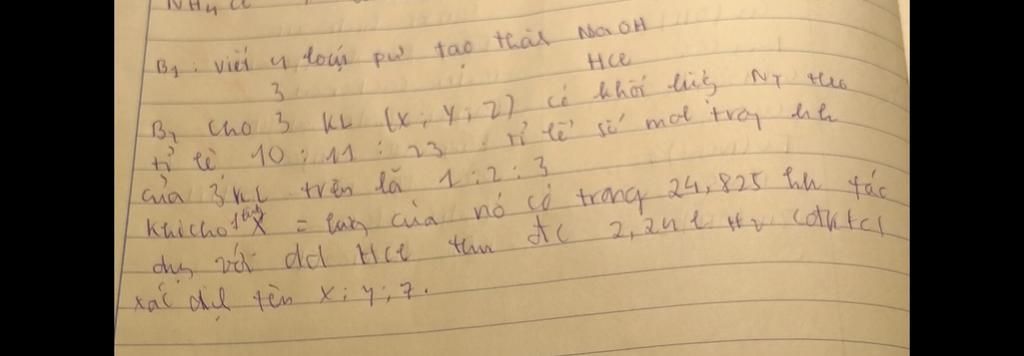 NH4 Cl
B1: viết 4 loại pư tạo thành NaOH
3 HCl
B1 Cho 3 KL (X; Y; Z) có khối lượng NT theo
tỉ lệ 10 : 11 : 23. tỉ lệ số mol trog hh
của 3 KL trên là 1 : 2 : 3
Khi cho 1 lượng X = lượng của nó có trong 24,825 hh tác
dụng với dd HCl thu đc 2,24 l H2 (đktc)
xác định tên X; Y; Z.